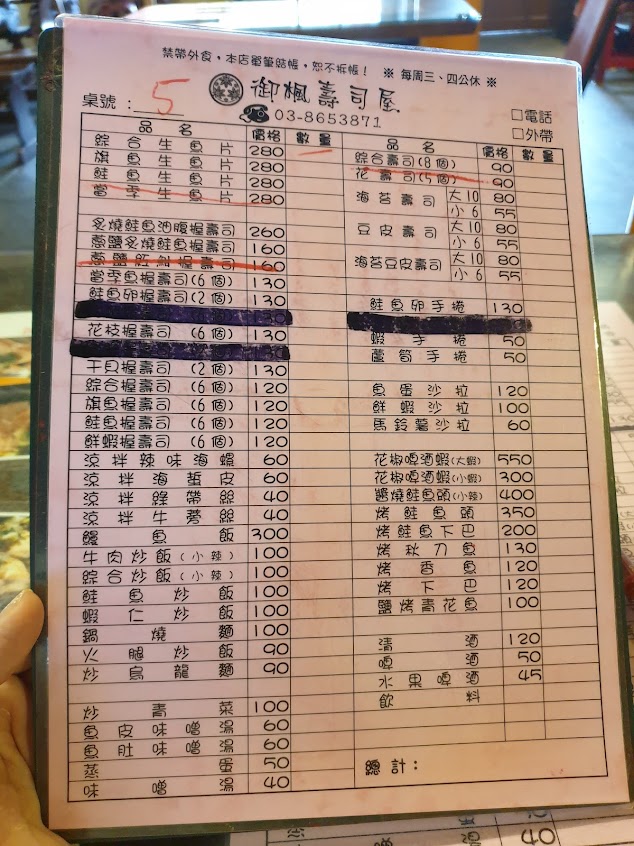 禁帶外食，本店單筆結帳，恕不拆帳！ ※ 每周三、四公休 ※
御楓壽司屋
桌號：5
03-8653871
□電話
□外帶
品名 價格 數量
綜合生魚片 280
旗魚生魚片 280
鮭魚生魚片 280
當季生魚片 280
炙燒鮭魚油腹握壽司 260
蔥鹽炙燒鮭魚握壽司 160
蔥鹽紅魽握壽司 160
當季魚握壽司(6個) 130
鮭魚卵握壽司(2個) 130
花枝握壽司(6個) 130
干貝握壽司(2個) 130
綜合握壽司(6個) 120
旗魚握壽司(6個) 120
鮭魚握壽司(6個) 120
鮮蝦握壽司(6個) 120
涼拌辣味海螺 60
涼拌海蜇皮 60
涼拌綠帶絲 40
涼拌牛蒡絲 40
鰻魚飯 300
牛肉炒飯(小辣) 100
綜合炒飯(小辣) 100
鮭魚炒飯 100
蝦仁炒飯 100
鍋燒麵 100
火腿炒飯 90
炒烏龍麵 90
炒青菜 100
魚皮味噌湯 60
魚肚味噌湯 60
蒸蛋 50
味噌湯 40
品名 價格 數量
綜合壽司(8個) 90
花壽司(5個) 90
海苔壽司 大10 80
小6 55
豆皮壽司 大10 80
小6 55
海苔豆皮壽司 大10 80
小6 55
鮭魚卵手捲 130
蝦手捲 50
蘆筍手捲 50
魚蛋沙拉 120
鮮蝦沙拉 100
馬鈴薯沙拉 60
花椒啤酒蝦(大蝦) 550
花椒啤酒蝦(小蝦) 300
醬燒鮭魚頭(小辣) 400
烤鮭魚頭 350
烤鮭魚下巴 200
烤秋刀魚 130
烤香魚 120
烤下巴 120
鹽烤青花魚 100
清酒 120
啤酒 50
水果啤酒 45
飲料
總計：